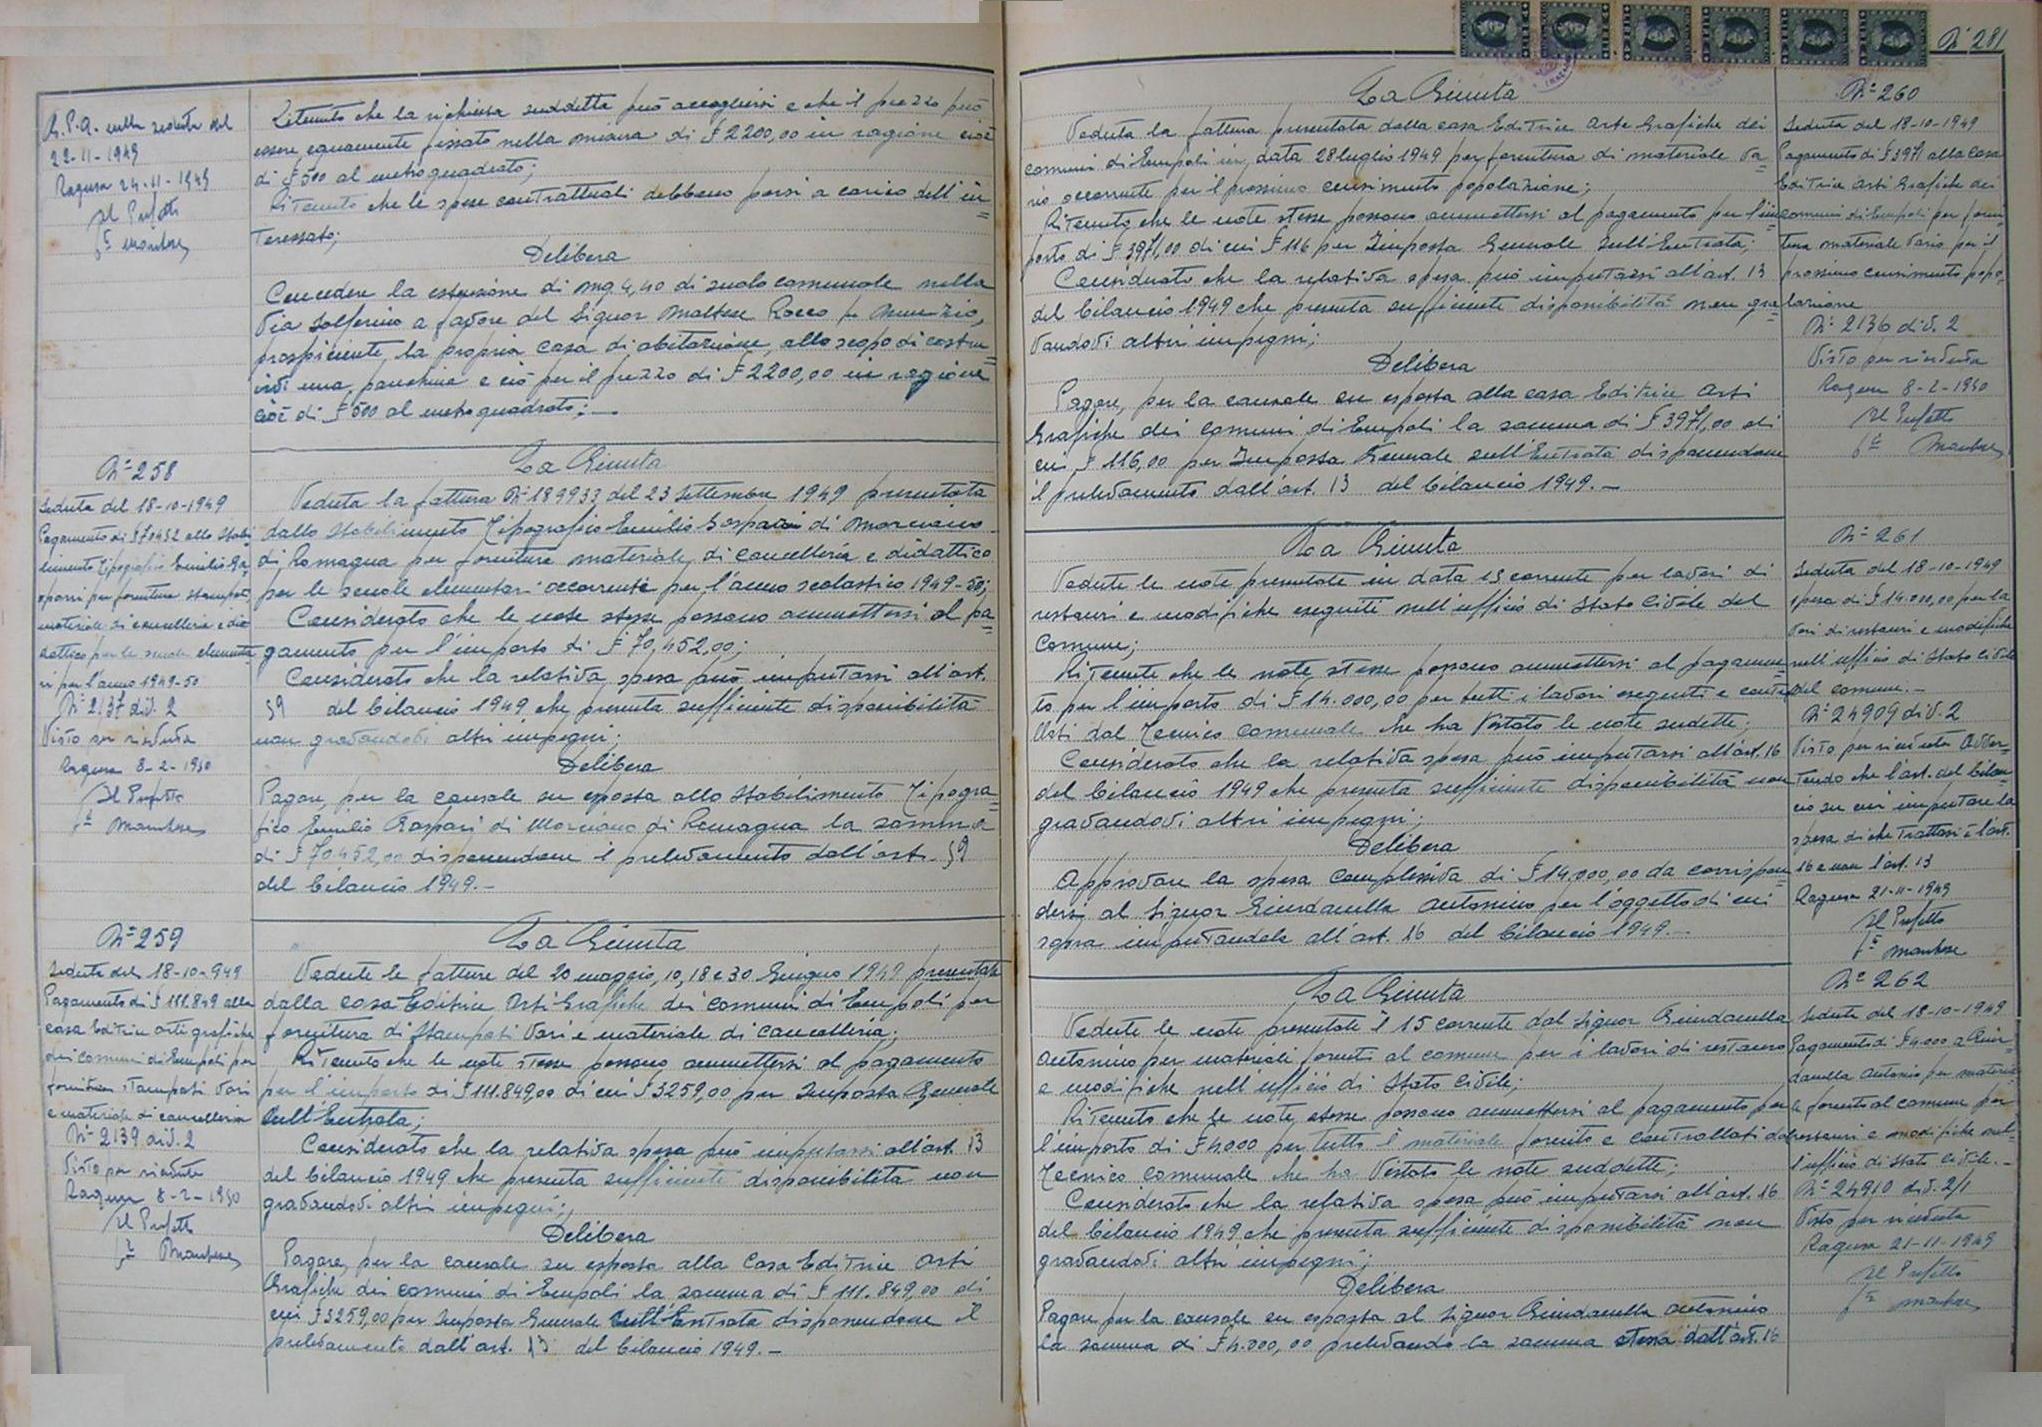 G.P.A. nella seduta del
22-11-1949
Ragusa 24-11-1949
Il Prefetto
Ritenuto che la richiesta suddetta può accogliersi e che il prezzo può
essere equamente fissato nella misura di £ 2200,00 in ragione cioè
di £ 500 al metro quadrato;
Ritenuto che le spese contrattuali debbono porsi a carico dell'in=
teressato;
Delibera
Concedere la estensione di mq 4,40 di suolo comunale nella
Via Solferino a favore del Signor Maltese Rocco fu Nunzio,
prospiciente la propria casa di abitazione, allo scopo di costru=
irvi una panchina e ciò per il prezzo di £ 2200,00 in ragione
cioè di £ 500 al metro quadrato;—
N° 258
Seduta del 18-10-1949
Pagamento di £ 70452 allo Stabi
limento Tipografico Emilio Ga=
spari per fornitura stampati,
materiale di cancelleria e di=
dattico per le scuole elementa
ri per l'anno 1949-50
N° 2137 div. 2
Visto per ricevuta
Ragusa 8-2-1950
Il Prefetto
La Giunta
Veduta la fattura N° 189933 del 23 Settembre 1949 presentata
dallo Stabilimento Tipografico Emilio Gaspari di Morciano
di Romagna per forniture materiale di cancelleria e didattico
per le scuole elementari occorrente per l'anno scolastico 1949-50;
Considerato che le note stesse possono ammettersi al pa=
gamento per l'importo di £ 70,452,00;
Considerato che la relativa spesa può imputarsi all'art.
59 del bilancio 1949 che presenta sufficiente disponibilità
non gravandovi altri impegni;
Delibera
Pagare, per la causale su esposta allo Stabilimento Tipogra=
fico Emilio Gaspari di Morciano di Romagna la somma
di £ 70452,00 disponendone il prelevamento dall'art. 59
del bilancio 1949.—
N° 259
Seduta del 18-10-949
Pagamento di £ 111.849 alla
casa Editrice arti grafiche
dei comuni di Empoli per
fornitura stampati vari
e materiale di cancelleria
N° 2139 div. 2
Visto per ricevuta
Ragusa 8-2-1950
Il Prefetto
La Giunta
Vedute le fatture del 20 maggio, 10, 18 e 30 Giugno 1949 presentate
dalla casa Editrice Arti Grafiche dei comuni di Empoli per
fornitura di stampati vari e materiale di cancelleria;
Ritenuto che le note stesse possono ammettersi al pagamento
per l'importo di £ 111.849,00 di cui £ 3259,00 per Imposta Generale
sull'Entrata;
Considerato che la relativa spesa può imputarsi all'art. 13
del bilancio 1949 che presenta sufficiente disponibilità non
gravandovi altri impegni;
Delibera
Pagare, per la causale su esposta alla Casa Editrice Arti
Grafiche dei comuni di Empoli la somma di £ 111.849,00 di
cui £ 3259,00 per Imposta Generale sull'Entrata disponendone il
prelevamento dall'art. 13 del bilancio 1949.—
N° 281
La Giunta
Veduta la fattura presentata dalla casa Editrice Arte Grafiche dei
comuni di Empoli in data 28 luglio 1949 per fornitura di materiale va=
rio occorrente per il prossimo censimento popolazione;
Ritenuto che le note stesse possono ammettersi al pagamento per l'im=
porto di £ 3971,00 di cui £ 116 per Imposta Generale sull'Entrata;
Considerato che la relativa spesa può imputarsi all'art. 13
del bilancio 1949 che presenta sufficiente disponibilità non gra=
vandovi altri impegni;
Delibera
Pagare, per la causale su esposta alla casa Editrice Arti
Grafiche dei comuni di Empoli la somma di £ 3971,00 di
cui £ 116,00 per Imposta Generale sull'Entrata disponendone
il prelevamento dall'art. 13 del bilancio 1949.—
N° 260
Seduta del 18-10-1949
Pagamento di £ 3971 alla casa
Editrice Arti Grafiche dei
comuni di Empoli per forni
tura materiale vario per il
prossimo censimento popo=
lazione
N° 2136 div. 2
Visto per ricevuta
Ragusa 8-2-1950
Il Prefetto
La Giunta
Vedute le note presentate in data 15 corrente per lavori di
restauri e modifiche eseguiti nell'ufficio di Stato Civile del
Comune;
Ritenute che le note stesse possono ammettersi al pagamen=
to per l'importo di £ 14.000,00 per tutti i lavori eseguiti e control
lati dal Tecnico comunale che ha vistato le note sudette;
Considerato che la relativa spesa può imputarsi all'art. 16
del bilancio 1949 che presenta sufficiente disponibilità non
gravandovi altri impegni;
Delibera
Approvare la spesa complessiva di £ 14.000,00 da corrispon
dersi al Signor Giurdanella Antonino per l'oggetto di cui
sopra imputandola all'art. 16 del bilancio 1949.—
N° 261
Seduta del 18-10-1949
spesa di £ 14.000,00 per la
vori di restauri e modifiche
nell'ufficio di Stato Civile
del comune.—
N° 24909 div. 2
Visto per ricevuta Avver=
tendo che l'art. del bilan
cio su cui imputare la
spesa di che trattasi è l'art.
16 e non l'art. 13
Ragusa 21-11-1949
Il Prefetto
La Giunta
Vedute le note presentate il 15 corrente dal Signor Giurdanella
Antonino per materiali forniti al comune per i lavori di restauro
e modifiche nell'ufficio di Stato Civile;
Ritenuto che le note stesse possono ammettersi al pagamento per
l'importo di £ 4.000 per tutto il materiale fornito e controllati dal
Tecnico comunale che ha vistato le note suddette;
Considerato che la relativa spesa può imputarsi all'art. 16
del bilancio 1949 che presenta sufficiente disponibilità non
gravandovi altri impegni;
Delibera
Pagare per la causale su esposta al Signor Giurdanella Antonino
la somma di £ 4.000,00 prelevando la somma stessa dall'art. 16
N° 262
Seduta del 18-10-1949
Pagamento di £ 4.000 a Giur=
danella Antonio per materia
le fornito al comune per
restauri e modifiche nel=
l'ufficio di Stato Civile.—
N° 24910 div. 2/1
Visto per ricevuta
Ragusa 21-11-1949
Il Prefetto